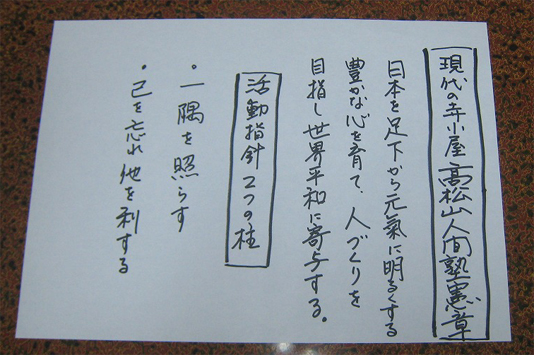 現代の寺小屋高松山人間塾憲章
日本を足下から元氣に明るくする
豊かな心を育て、人づくりを
目指し世界平和に寄与する。
活動指針2つの柱
・一隅を照らす
・己を忘れ他を利する